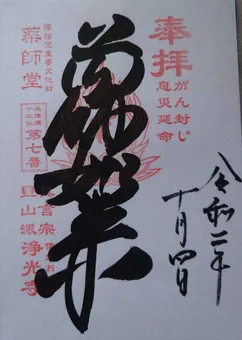 奉拝
がん封じ
息災延命
令和二年
十月四日
薬師如来
国指定重要文化財
薬師堂
第七番
真言宗
豊山派
浄光寺